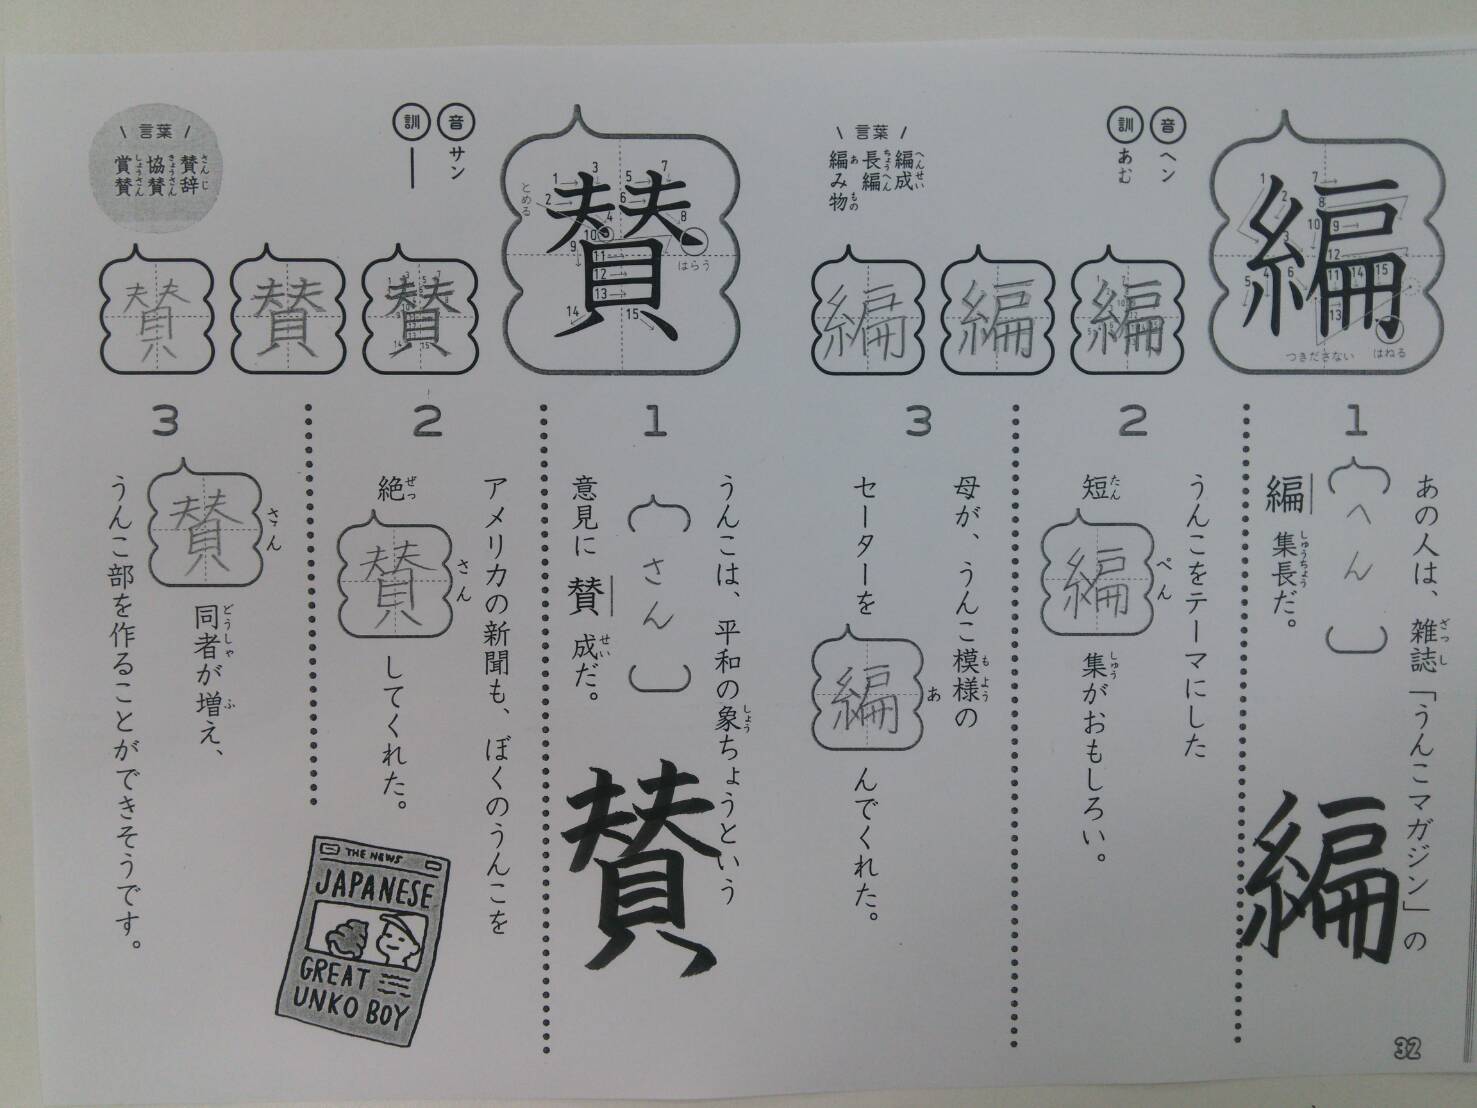 編
1
2
3
4
5
6
7
8
9
10
11
12
13
14
15
つきださない
はねる
音 ヘン
訓 あむ
言葉
編成 へんせい
長編 ちょうへん
編み物 あ もの
編
編
編
1
あの人は、雑誌「うんこマガジン」の
ざっし
〔へん〕
編集長だ。
しゅうちょう
編
2
うんこをテーマにした
短編集がおもしろい。
たん ぺん しゅう
3
母が、うんこ模様の
もよう
セーターを編んでくれた。
あ
賛
1
2
3
4
5
6
7
8
9
10
11
12
13
14
15
とめる
はらう
音 サン
訓 ―
言葉
賛辞 さんじ
協賛 きょうさん
賞賛 しょうさん
賛
賛
賛
1
うんこは、平和の象ちょうという
しょう
〔さん〕
意見に賛成だ。
せい
賛
2
アメリカの新聞も、ぼくのうんこを
絶賛してくれた。
ぜっ さん
3
賛同者が増え、
さん どうしゃ ふ
うんこ部を作ることができそうです。
THE NEWS
JAPANESE
GREAT
UNKO BOY
32